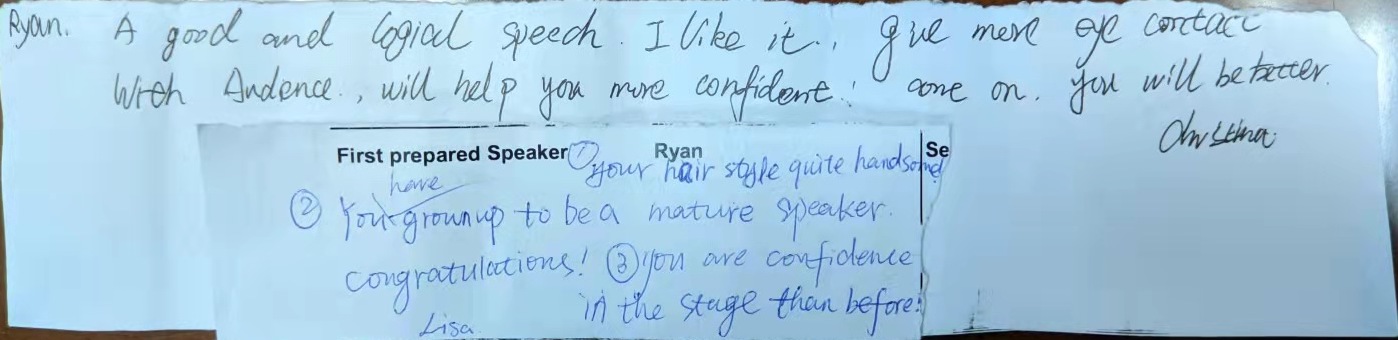 Ryan. A good and logial speech. I like it., give more eye contact
With Audence., will help you more confident. come on. you will be better.
Christina
First prepared Speaker Ryan Se
① your hair style quite handsome
② You have grown up to be a mature speaker.
congratulations! ③ you are confidence
in the stage than before!
Lisa.